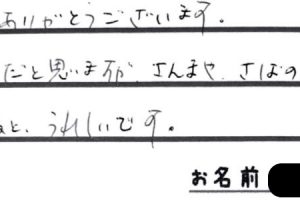 ありがとうございます。
だと思いますが、さんまや、さばの
と、うれしいです。
お名前